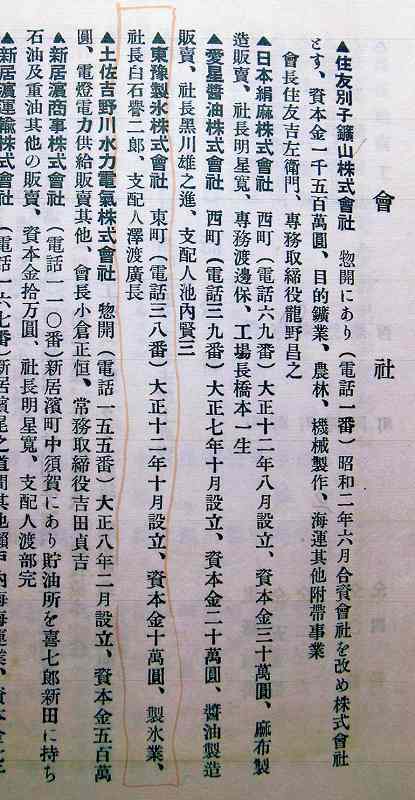 會社
▲住友別子鑛山株式會社 惣開にあり（電話一番）昭和二年六月合資會社を改め株式會社
とす、資本金一千五百萬圓、目的鑛業、農林、機械製作、海運其他附帶事業
會長住友吉左衛門、專務取締役龍野昌之
▲日本絹麻株式會社 西町（電話六九番）大正十二年八月設立、資本金三十萬圓、麻布製
造販賣、社長明星寬、專務渡邊保、工場長橋本一生
▲愛星醬油株式會社 西町（電話三九番）大正七年十月設立、資本金二十萬圓、醬油製造
販賣、社長黑川雄之進、支配人池内賢三
▲東豫製氷株式會社 東町（電話三八番）大正十二年十月設立、資本金十萬圓、製氷業、
社長白石譽二郎、支配人澤渡廣長
▲土佐吉野川水力電氣株式會社 惣開（電話一五五番）大正八年二月設立、資本金五百萬
圓、電燈電力供給販賣其他、會長小倉正恒、常務取締役吉田貞吉
▲新居濱商事株式會社（電話一一〇番）新居濱町中須賀にあり貯油所を喜七郎新田に持ち
石油及重油其他の販賣、資本金拾万圓、社長明星寬、支配人渡部完
▲新居濱運輸株式會社（電話一六七番）新居濱